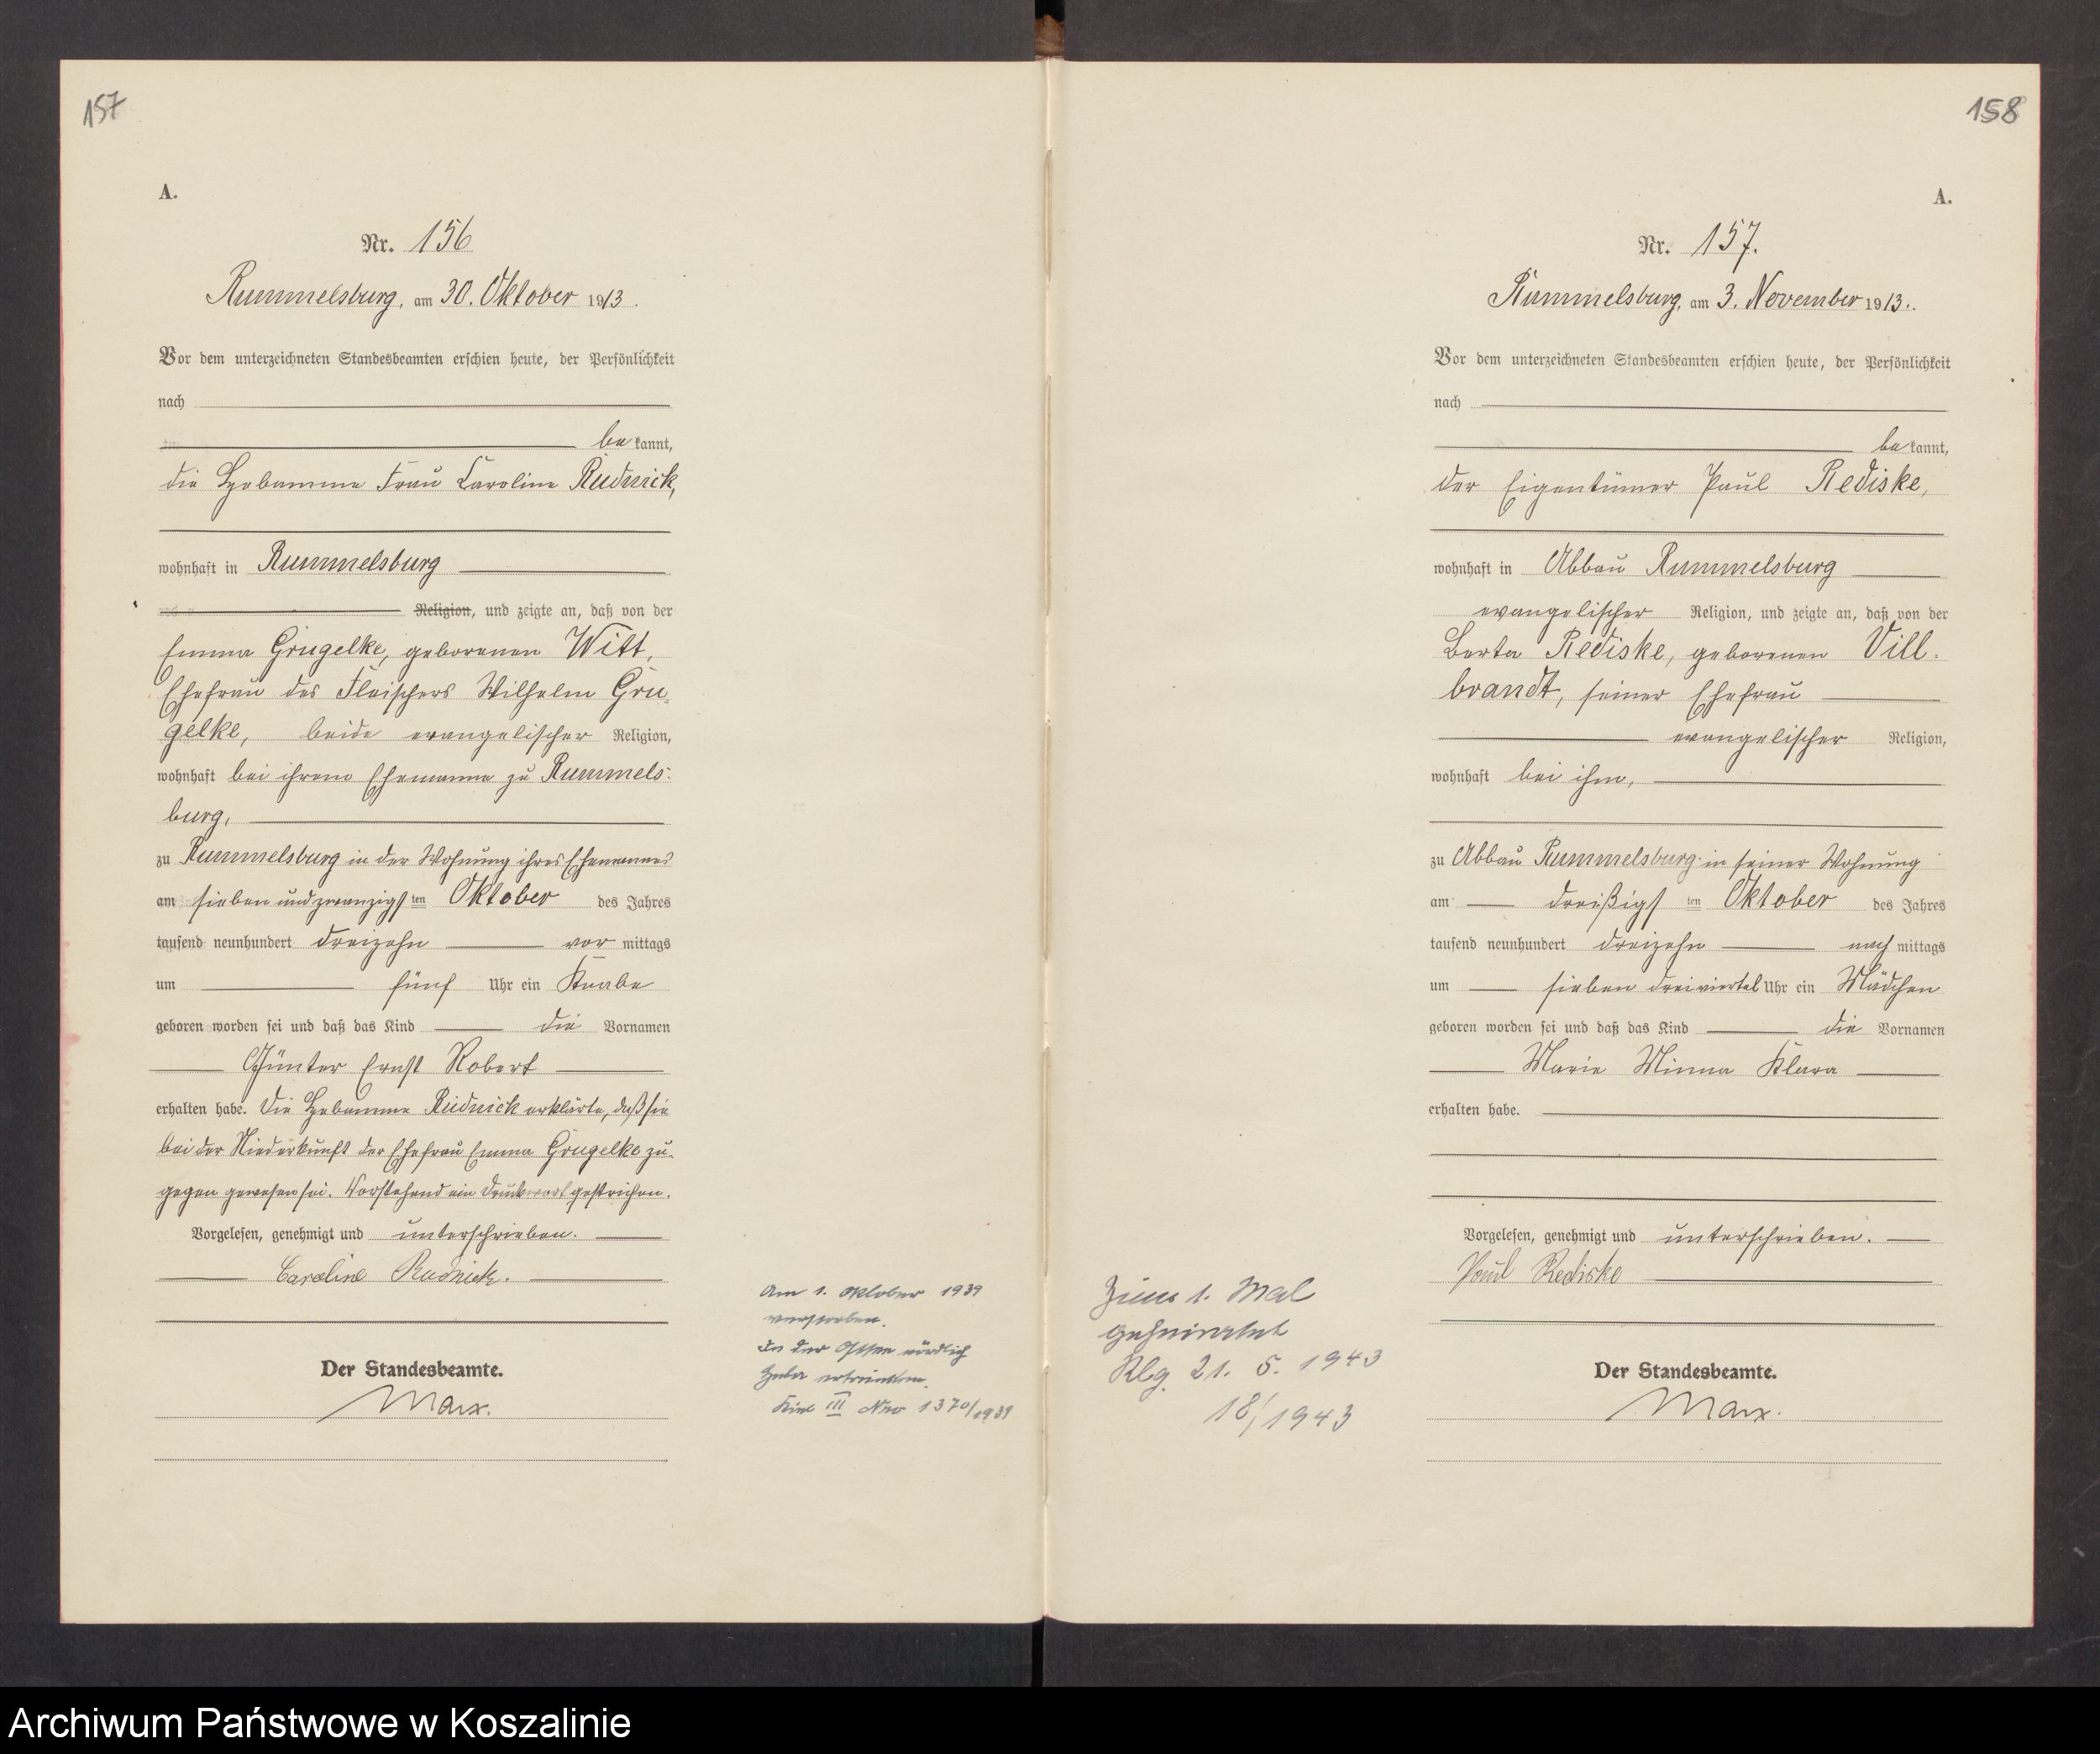 157
A.
Nr. 156
Rummelsburg, am 30. Oktober 1913.
Vor dem unterzeichneten Standesbeamten erschien heute, der Persönlichkeit
nach
be kannt,
die Hebamme Frau Caroline Rudnick,
wohnhaft in Rummelsburg
Religion, und zeigte an, daß von der
Emma Grugelke, geborenen Witt,
Ehefrau des Fleischers Wilhelm Gru-
gelke, beide evangelischer Religion,
wohnhaft bei ihrem Ehemanne zu Rummels-
burg,
zu Rummelsburg in der Wohnung ihres Ehemannes
am sieben und zwanzigsten Oktober des Jahres
tausend neunhundert dreizehn vor mittags
um fünf Uhr ein Knabe
geboren worden sei und daß das Kind die Vornamen
Günter Ernst Robert
erhalten habe. Die Hebamme Rudnick erklärte, daß sie
bei der Niederkunft der Ehefrau Emma Grugelke zu-
gegen gewesen sei. Vorstehend ein Druckwort gestrichen.
Vorgelesen, genehmigt und unterschrieben.
Caroline Rudnick.
Der Standesbeamte.
Marx.
Am 1. Oktober 1939
verstorben.
In der Ostsee nördlich
Hela ertrunken.
Kiel III Nro 1370/1939
158
A.
Nr. 157.
Rummelsburg, am 3. November 1913.
Vor dem unterzeichneten Standesbeamten erschien heute, der Persönlichkeit
nach
be kannt,
der Eigentümer Paul Rediske,
wohnhaft in Abbau Rummelsburg
evangelischer Religion, und zeigte an, daß von der
Berta Rediske, geborenen Vill-
brandt, seiner Ehefrau
evangelischer Religion,
wohnhaft bei ihm,
zu Abbau Rummelsburg in seiner Wohnung
am dreißigsten Oktober des Jahres
tausend neunhundert dreizehn nach mittags
um sieben dreiviertel Uhr ein Mädchen
geboren worden sei und daß das Kind die Vornamen
Marie Minna Klara
erhalten habe.
Vorgelesen, genehmigt und unterschrieben.
Paul Rediske
Der Standesbeamte.
Marx.
Zum 1. Mal
geheiratet
Rbg 21. 5. 1943
18/1943
Archiwum Państwowe w Koszalinie